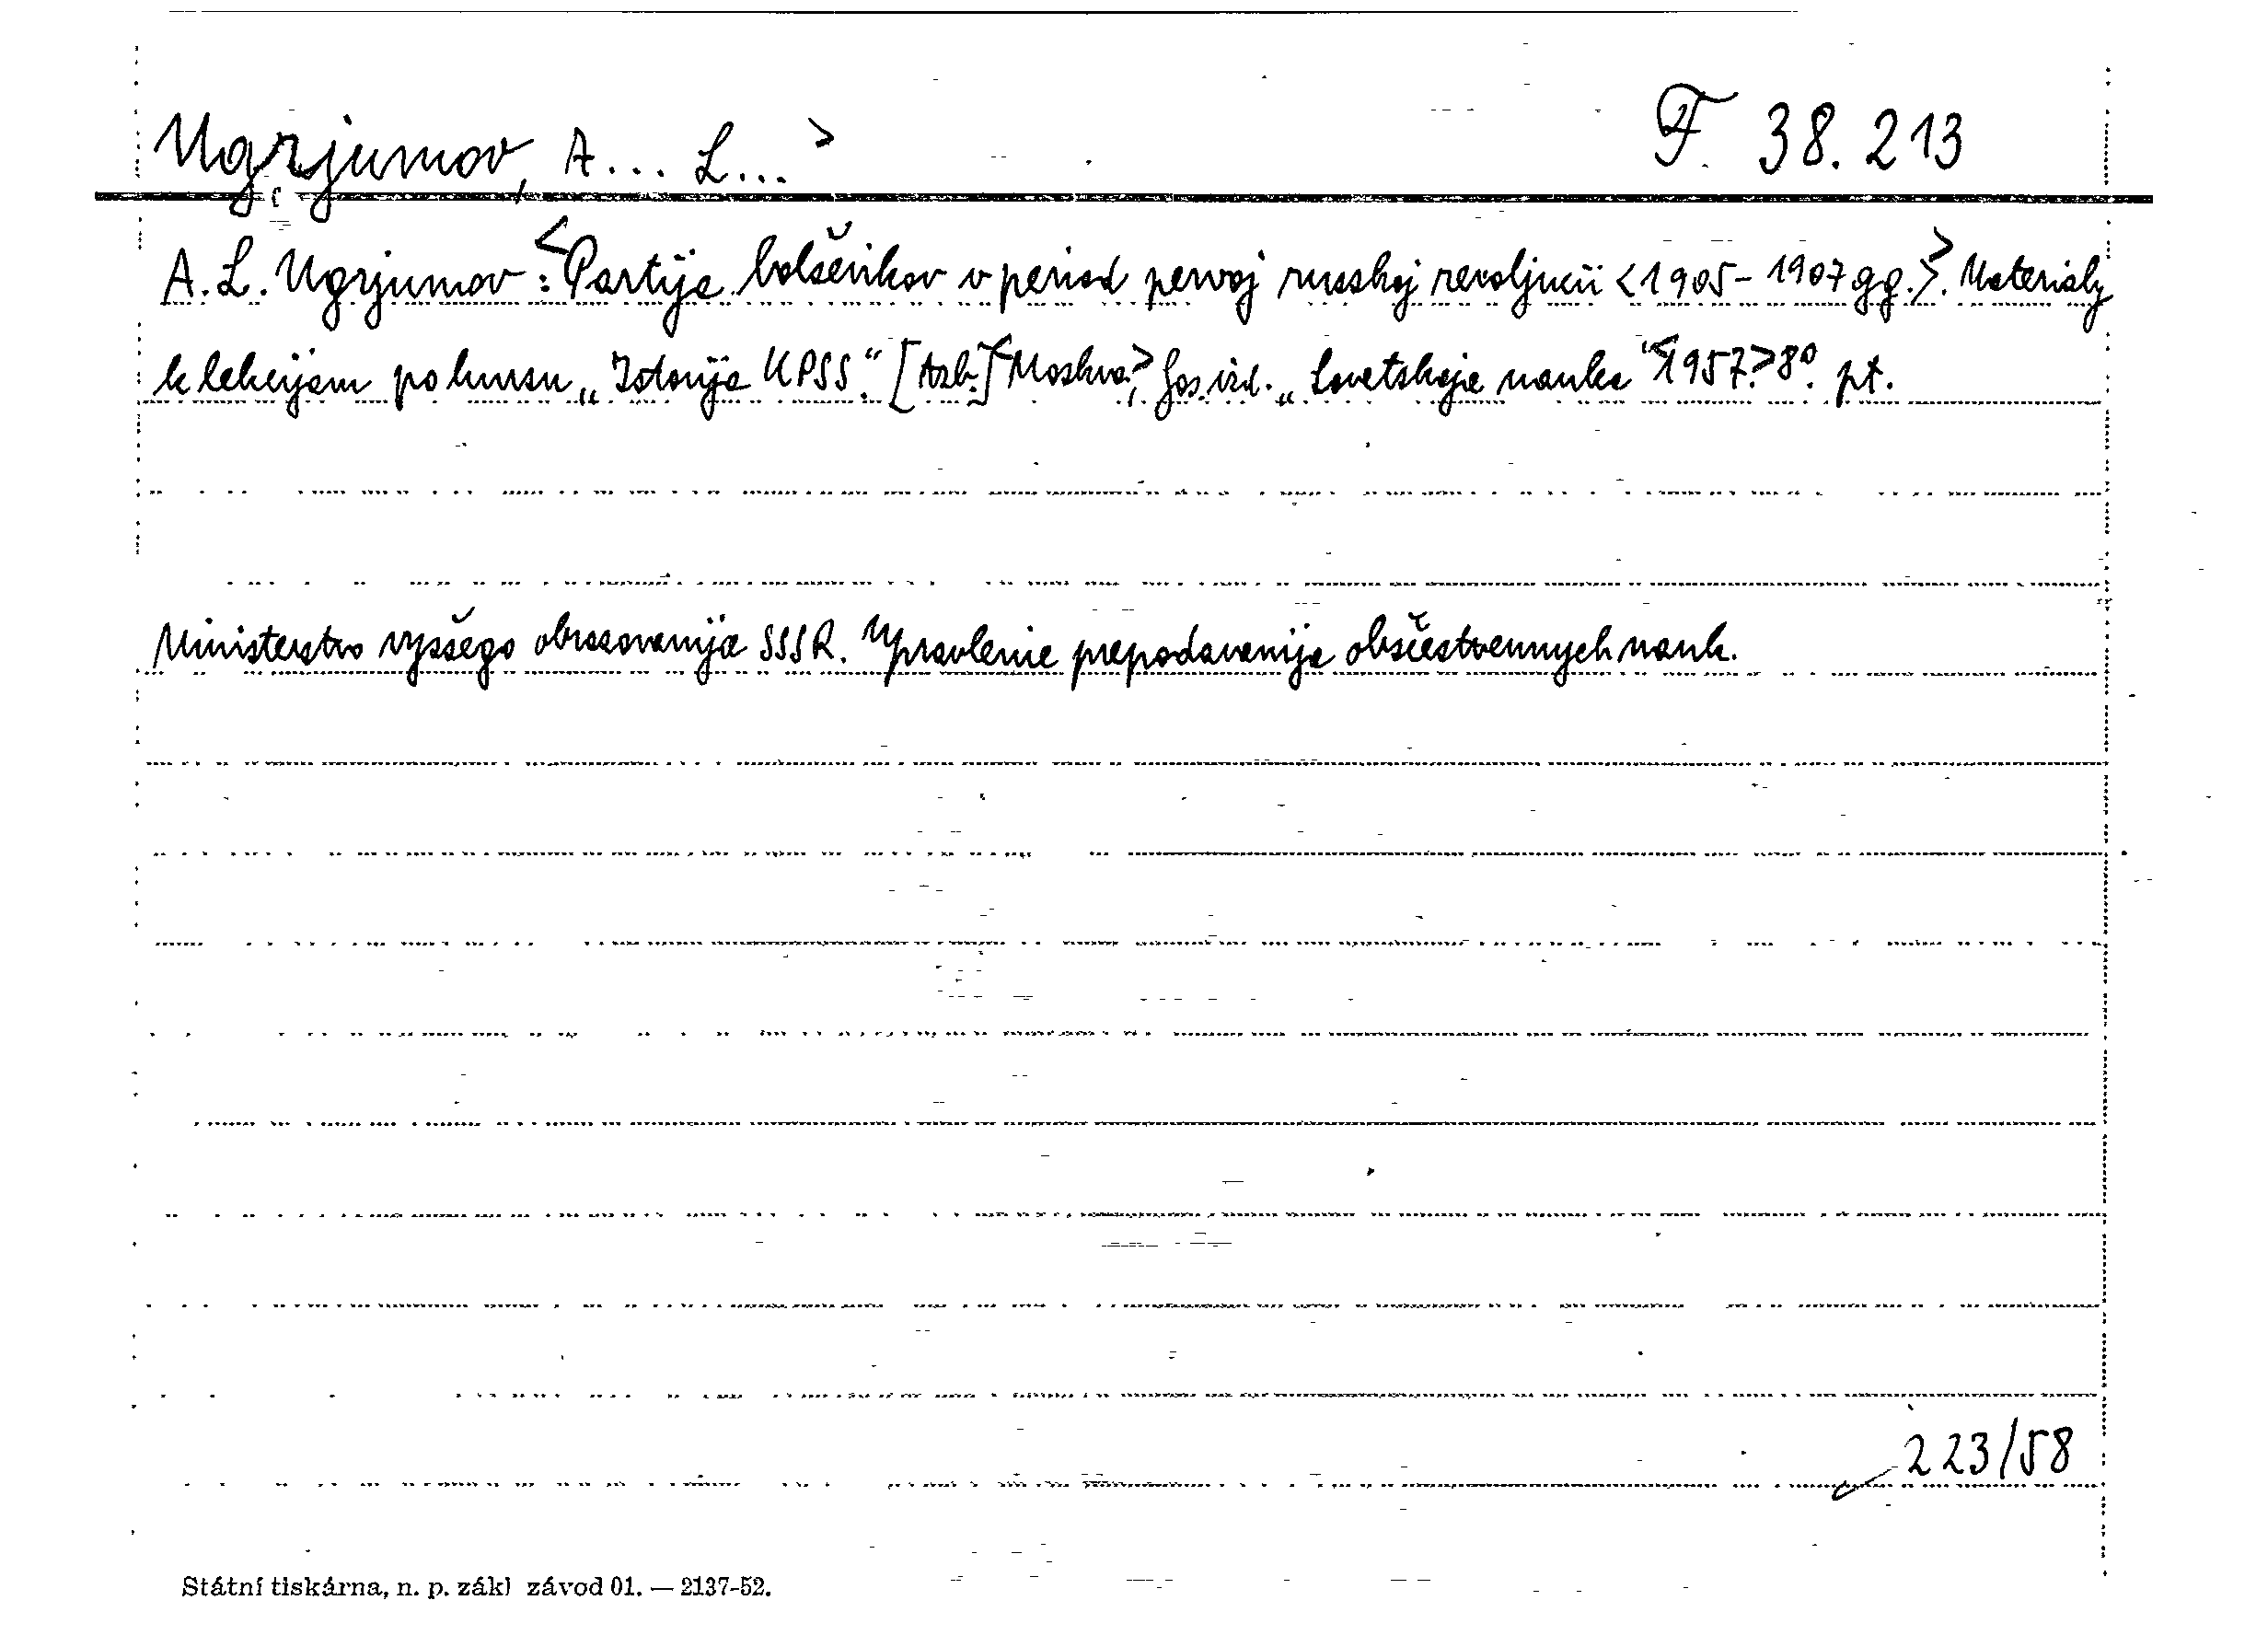 Ugrjumov, A... L... > F 38.213
A. L. Ugrjumov: <Partija bolševikov v period pervoj russkoj revoljucii <1905-1907 gg.>>. Materialy
k lekcijam po kursu „Istorija KPSS“. [Azb.] <Moskva>, Gos. izd. „Sovetskaja nauka“ <1957.> 8°. pt.
Ministerstvo vysšego obrazovanija SSSR. Upravlenie prepodavanija obščestvennych nauk.
223/58
Státní tiskárna, n. p. zákl závod 01. — 2137-52.